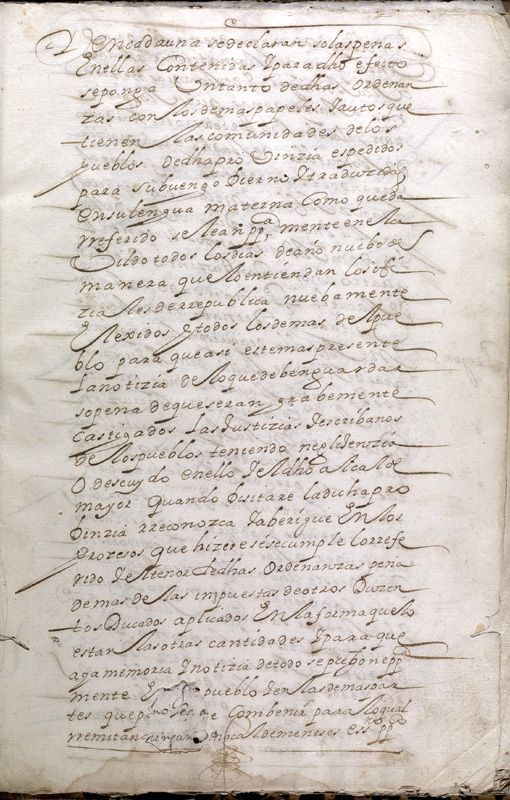 en cada una se declaran so las penas
En ellas Contenidas Y para dho efecto
se ponga Un tanto de dhas ordenan
zas con los demas papeles Y autos que
tienen las comunidades de los
pueblos de dha pro Vinzia espedidos
para su buen go bierno Y traduzida
en su lengua materna Como queda
rreferido se lean ppca mente en el ca
Vildo todos los dias de año nuebo de
manera que lo entiendan los ofi
ziales de rrepublica nuebamente
Elexidos Y todos los demas del pue
blo para que asi este mas presente
la notizia de lo que deben guardar
so pena de que seran grabemente
castigados las Justizias Y escribanos
de los pueblos teniendo neglidenzia
O descuydo en ello Y el dho alcalde
mayor quando Visitare la dicha pro
binzia rreconozca Y aberigue En los
prozesos que hiziere si se cumple lo rrefe
rido Y el tenor de dhas Ordenanzas pena
demas de las inpuestas de otros Duzien
tos Ducados aplicados En la forma que lo
estan las otras cantidades Y para que
aga memoria Y notizia de todo se pregone ppca
mente En pueblo Y en las demas par
tes que Combenir para lo qual
rremitan de meneses essno ppco